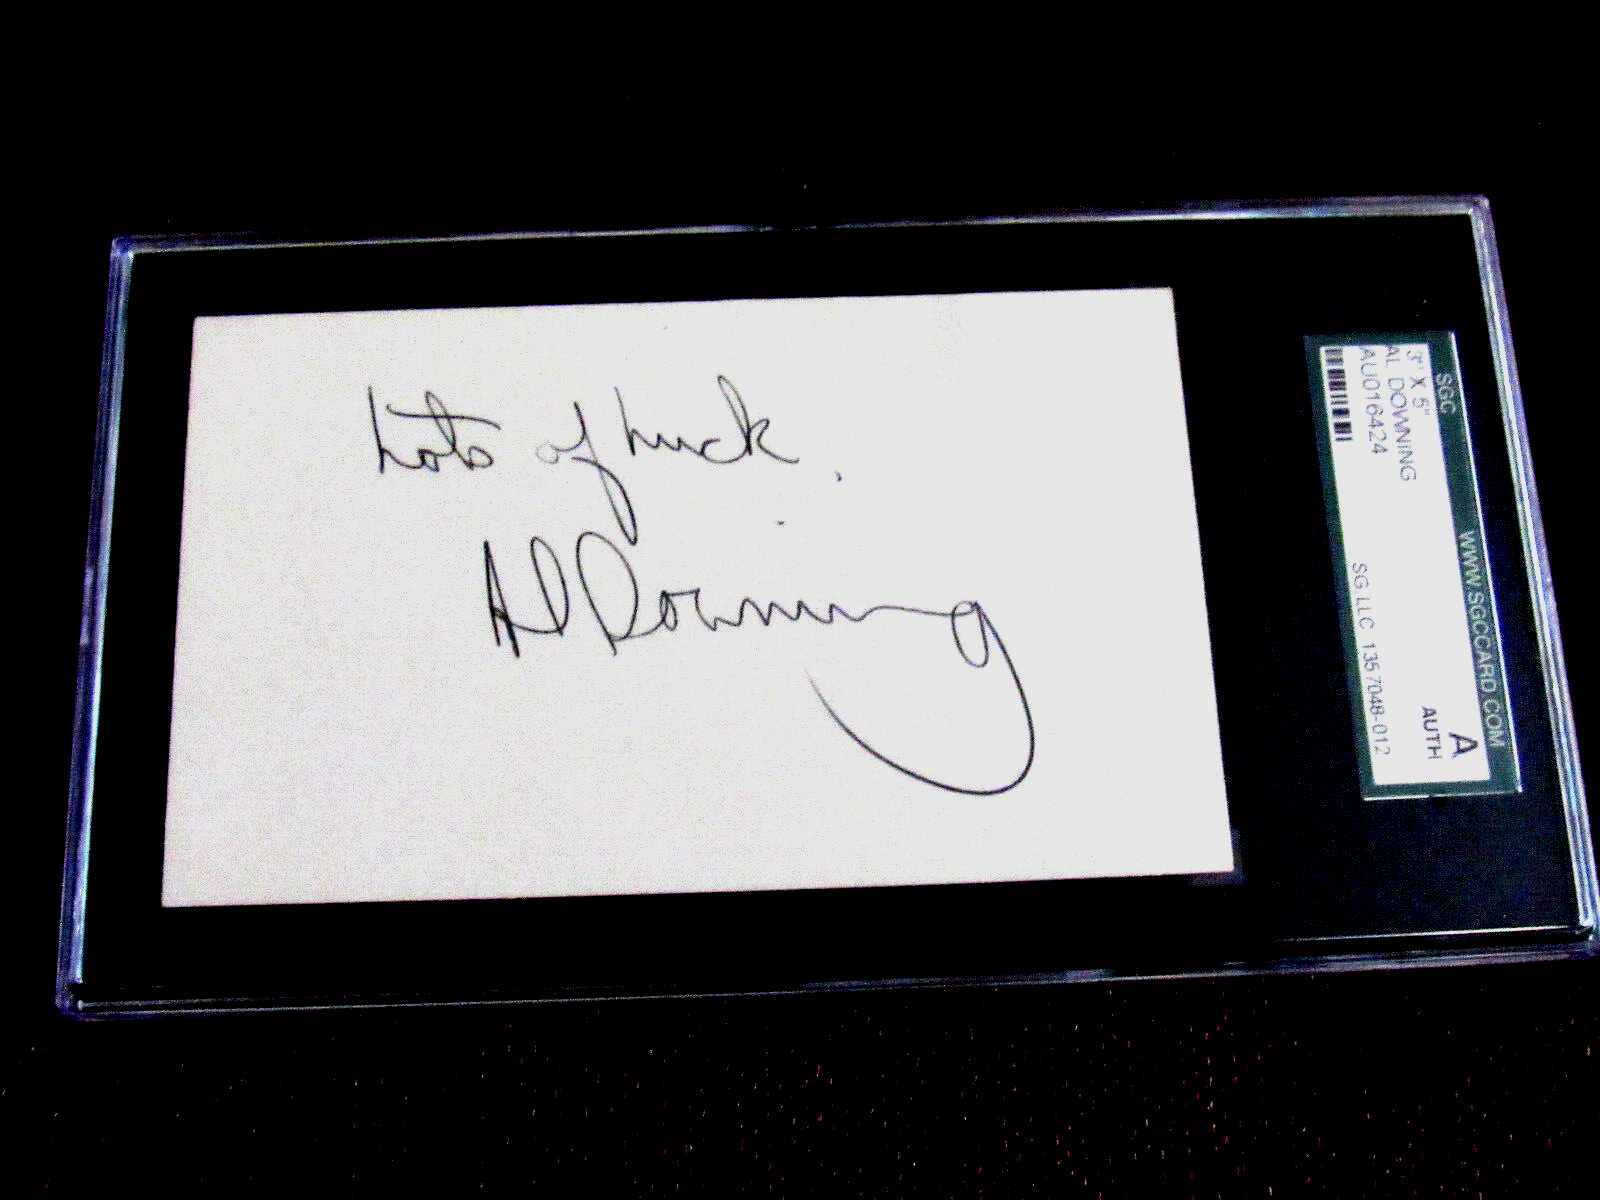 Lots of Luck.
Al Downing
SGC WWW.SGCCARD.COM
3" X 5" A
AL DOWNING AUTH
AU016424
SG LLC 1357048-012